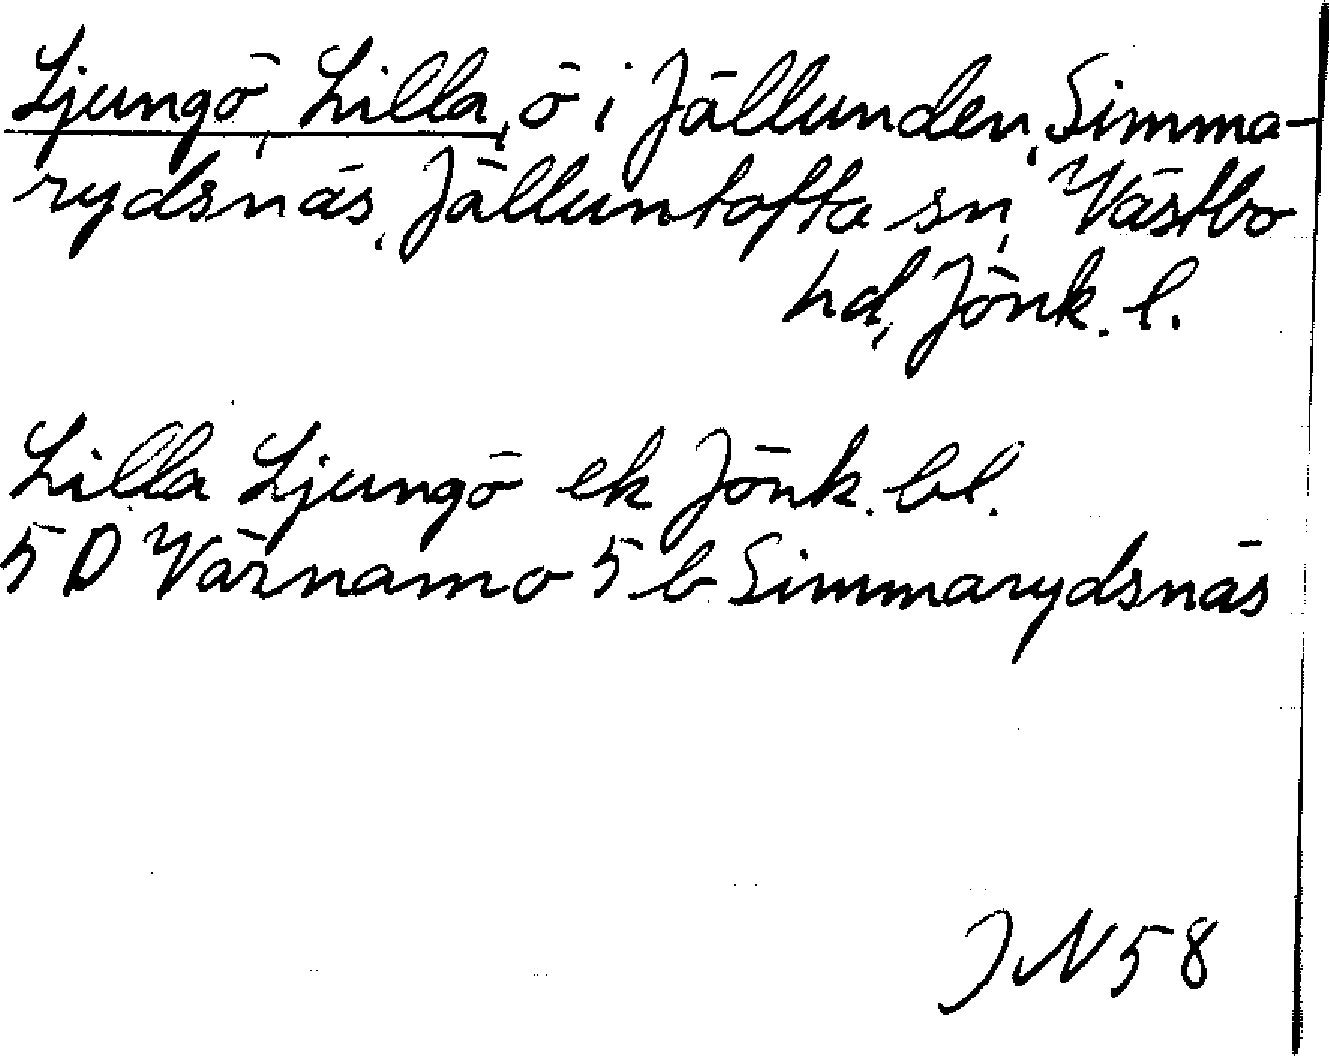 Ljungö, Lilla, ö i Jällunden, Simma-
rydsnäs, Jälluntofta sn, Västbo
hd, Jönk. l.
Lilla Ljungö ek Jönk. bl.
5 D Värnamo 5 b Simmarydsnäs
JN 58